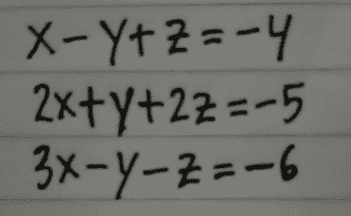 x - y + z = -4
2x + y + 2z = -5
3x - y - z = -6